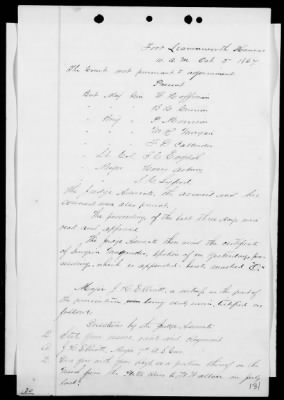 Fort Leavenworth Kansas
10 A.M. Oct 5 1867
The Court met pursuant to adjournment
Present
Bvt Maj Gen W Hoffman
" " " B H Grierson
" Brig " P Morrison
" " " M R Morgan
" " " F D Callender
" Lt Col T C English
" Major Henry Asbury
" " S C Lyford
The Judge Advocate, the accused and his
counsel were also present.
The proceedings of the last three days were
read and approved
The Judge Advocate then read the certificate
of Surgeon
which is appended hereto marked
Major J H Elliott, a witness on the part of
the prosecution was being duly sworn, testified as
follows:
Question by the Judge Advocate
State your name rank and regiment
J H Elliott, Major 7th U.S. Cav
Did you with your as a portion through on the
march from the Platte River to Ft Wallace in July
last?
20
131